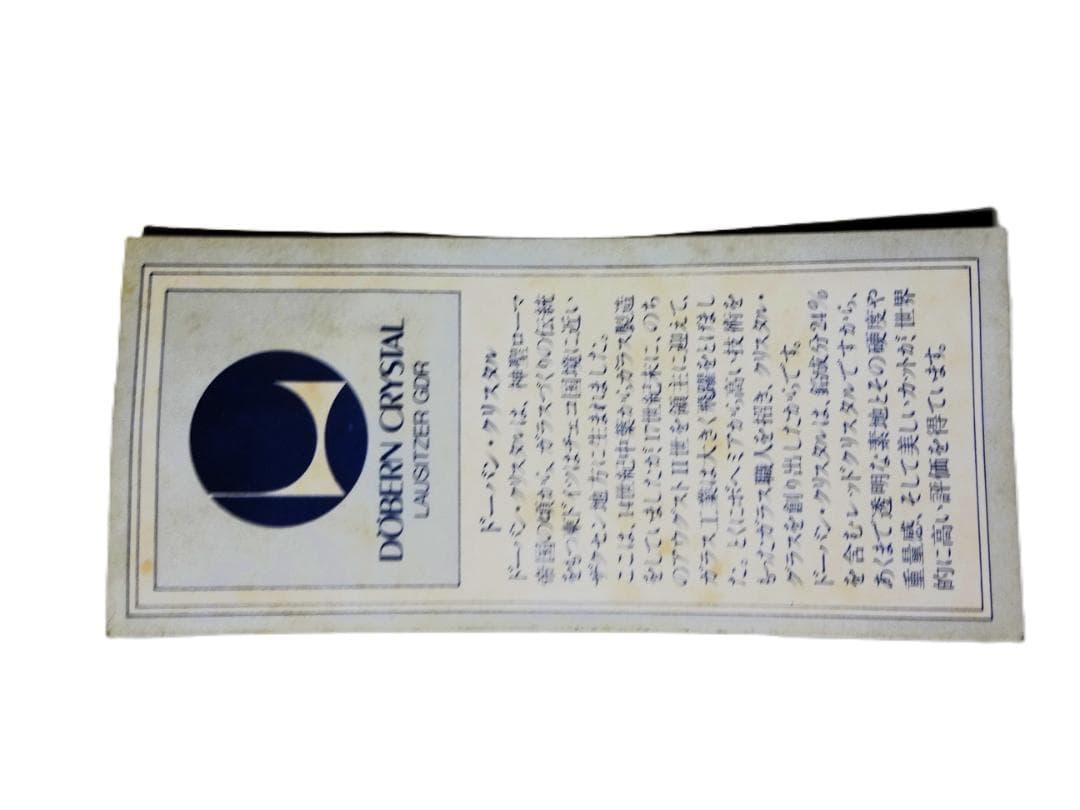 DÖBERN CRYSTAL
LAUSITZER GDR
ドーバン・クリスタル
ドーバン・クリスタルは、神聖ローマ
帝国の頃から、ガラスづくりの伝統
をもつ東ドイツはチェコ国境に近い
ザクセン地方に生まれました。
ここは、14世紀中葉からガラス製造
をしていましたが、17世紀末に、のち
のアウグストII世を領主に迎えて、
ガラス工業は大きく飛躍をとげまし
た。とくにボヘミアから高い技術を
もったガラス職人を招き、クリスタル・
グラスを創り出したからです。
ドーバン・クリスタルは、鉛成分24%
を含むレッドクリスタルですから、
あくまで透明な素地とその硬度や
重量感、そして美しいカットが、世界
的に高い評価を得ています。